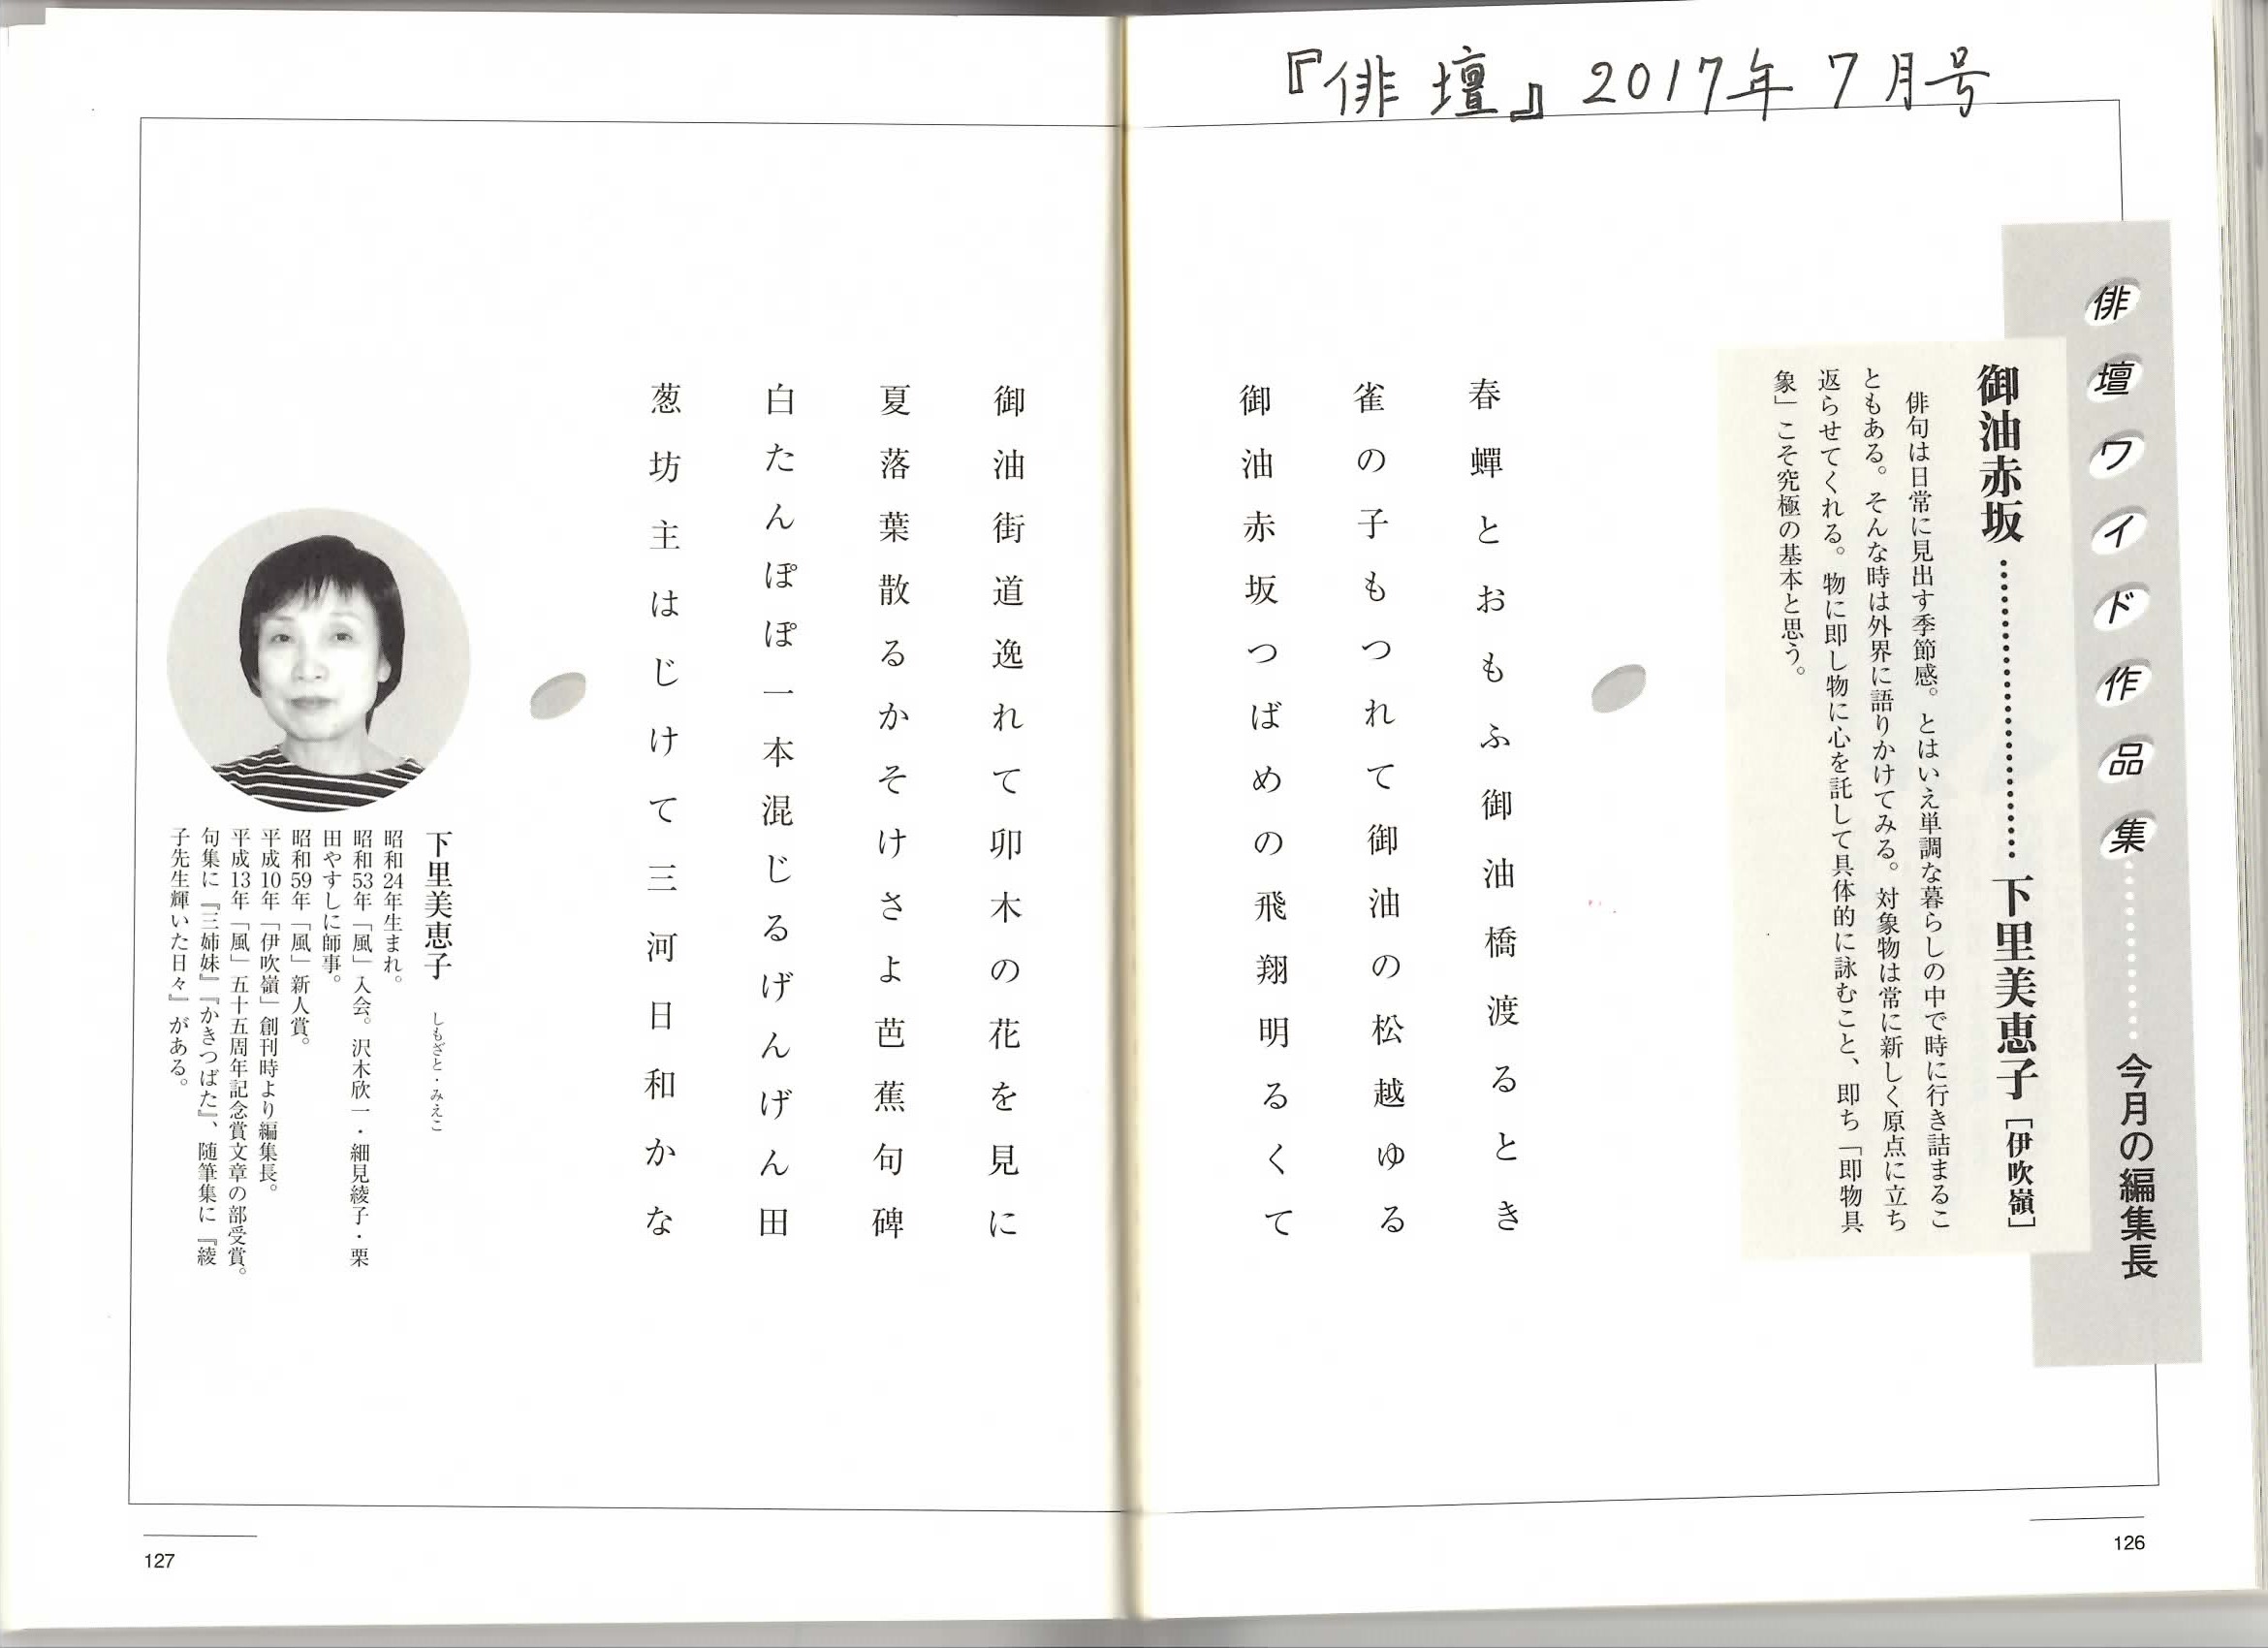 『俳壇』2017年7月号
俳壇ワイド作品集………今月の編集長
御油赤坂………………下里美恵子［伊吹嶺］
俳句は日常に見出す季節感。とはいえ単調な暮らしの中で時に行き詰まるこ
ともある。そんな時は外界に語りかけてみる。対象物は常に新しく原点に立ち
返らせてくれる。物に即し物に心を託して具体的に詠むこと、即ち「即物具
象」こそ究極の基本と思う。
春蟬とおもふ御油橋渡るとき
雀の子もつれて御油の松越ゆる
御油赤坂つばめの飛翔明るくて
126
御油街道逸れて卯木の花を見に
夏落葉散るかそけさよ芭蕉句碑
白たんぽぽ一本混じるげんげん田
葱坊主はじけて三河日和かな
下里美恵子 しもざと・みえこ
昭和24年生まれ。
昭和53年「風」入会。沢木欣一・細見綾子・栗
田やすしに師事。
昭和59年「風」新人賞。
平成10年「伊吹嶺」創刊時より編集長。
平成13年「風」五十五周年記念賞文章の部受賞。
句集に『三姉妹』『かきつばた』、随筆集に『綾
子先生輝いた日々』がある。
127